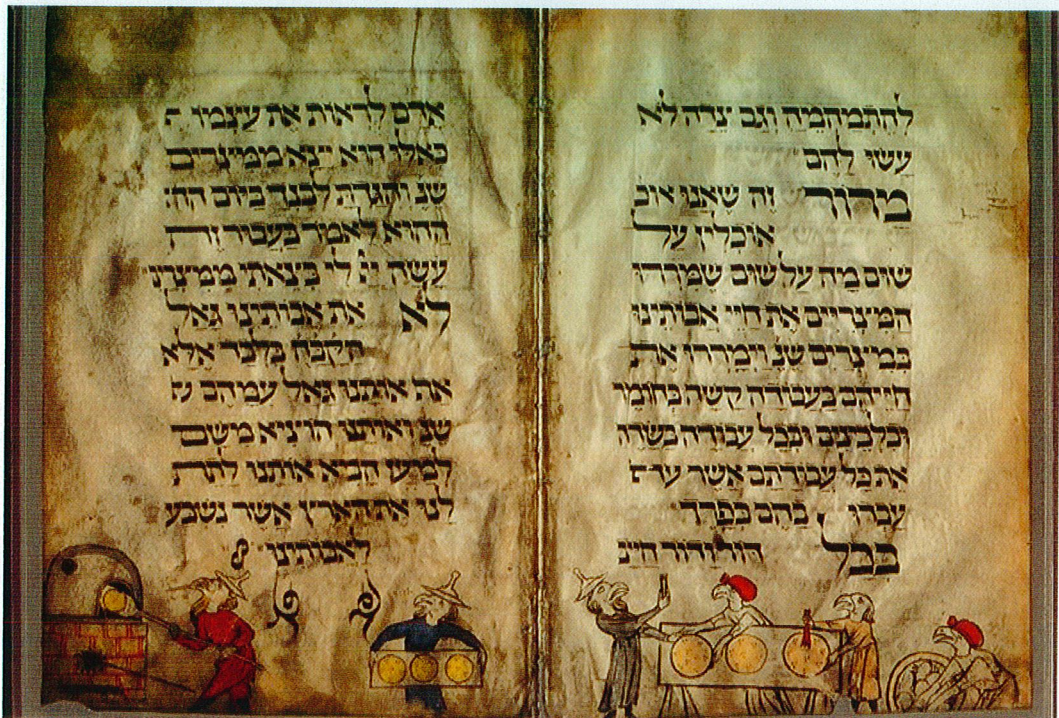 להתמהמה וגם צדה לא
עשו להם
מרור זה שאנו אוכ
אוכלין על
שום מה על שום שמררו
המצריים את חיי אבותינו
במצרים שנ וימררו את
חייהם בעבודה קשה בחומר
ובלבנים ובכל עבודה בשדה
את כל עבודתם אשר
עבדו בהם בפרך
בכל דור ודור חייב
אדם לראות את עצמו
כאלו הוא יצא ממצרים
שנ והגדת לבנך ביום הה
ההוא לאמר בעבור זה
עשה יי לי בצאתי ממצרים
לא את אבותינו גאל
הקבה בלבד אלא
את אותנו גאל עמהם
שנ ואותנו הוציא משם
למען הביא אותנו לתת
לנו את הארץ אשר נשבע
לאבותינו